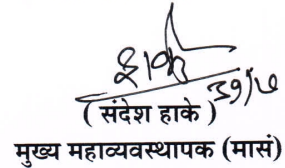 ( संदेश हाके )
मुख्य महाव्यवस्थापक (मासं)